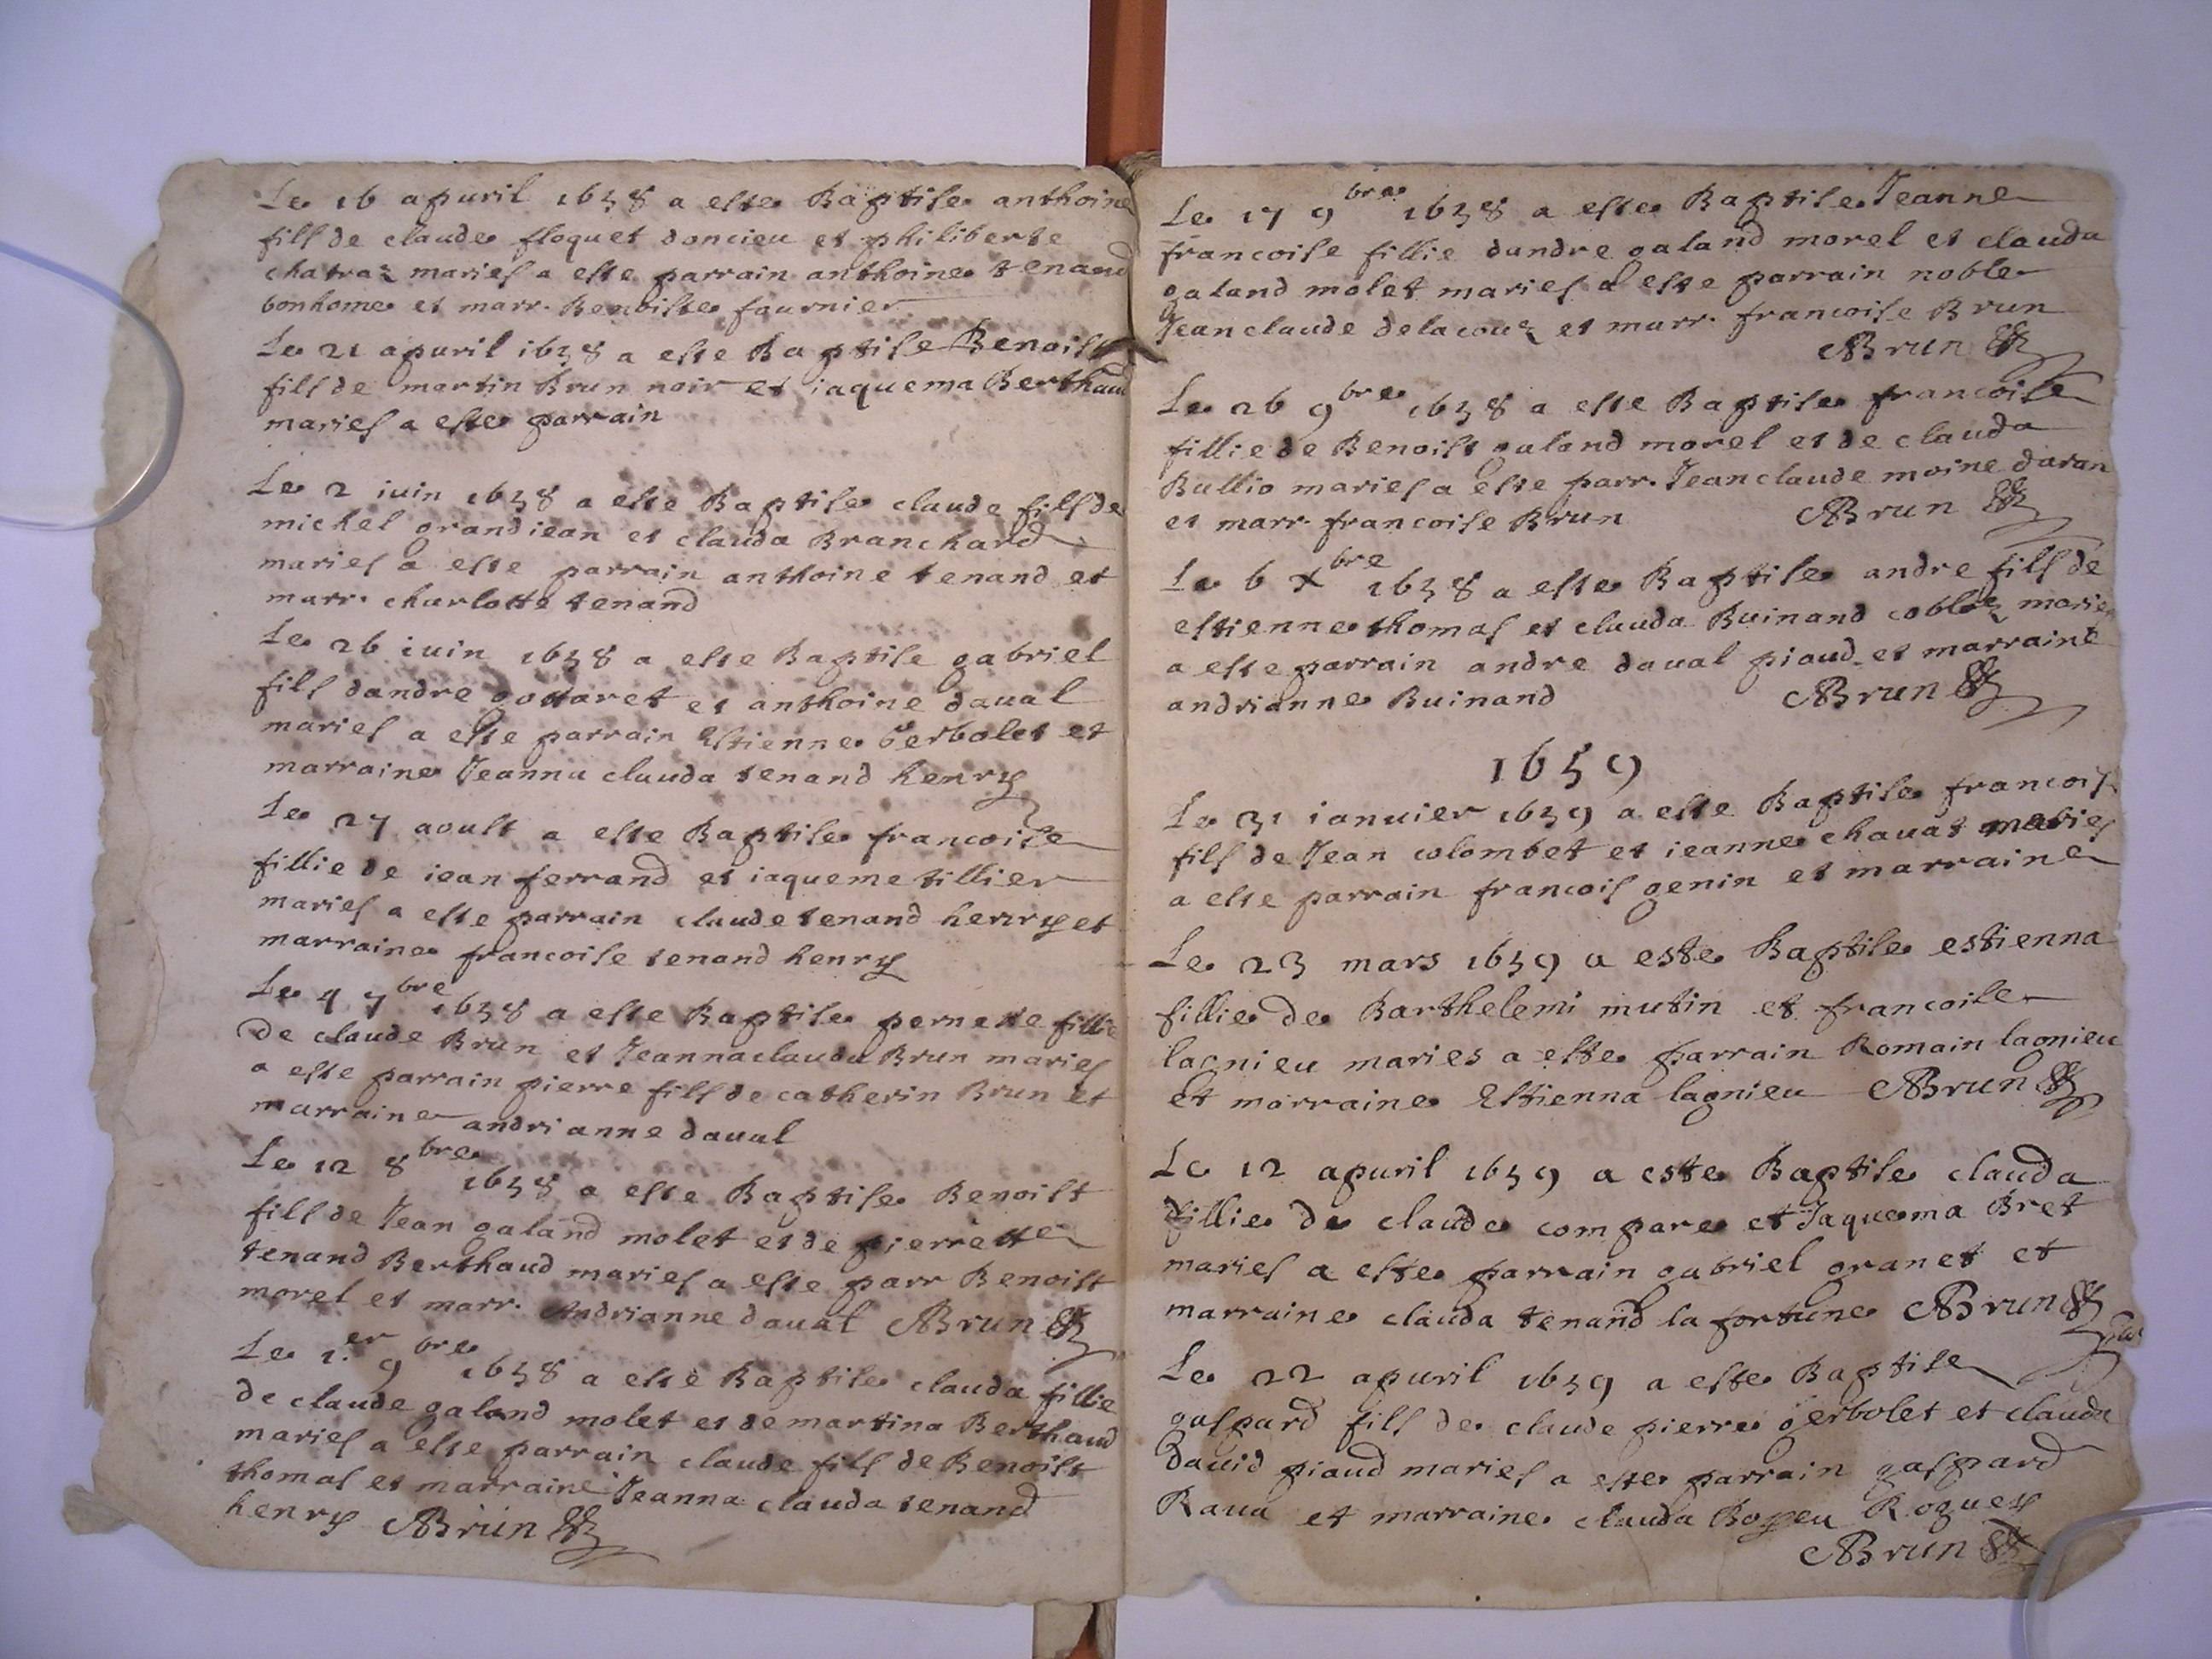 Le 16 apuril 1658 a este Baptise anthoine
fils de claude floquet doncieu et philiberte
chatraz maries a este parrain anthoine tenand
bonhome et marr. Benoiste fournier
Le 21 apuril 1658 a este Baptise Benoist
fils de martin Brun noir et iaquema Berthaud
maries a este parrain
Le 2 iuin 1658 a este Baptise claude fils de
michel grandiean et clauda Branchard
maries a este parrain anthoine tenand et
marr. charlotte tenand
Le 26 iuin 1658 a este Baptise gabriel
fils dandre gottaret et anthoine daual
maries a este parrain Estienne Gerbolet et
marraine Jeanna clauda tenand henry
Le 27 aoust a este Baptise francoise
fillie de iean ferrand et iaqueme tillier
maries a este parrain claude tenand henry et
marraine francoise tenand henry
Le 4 7bre 1658 a este Baptise pernette fillie
de claude Brun et Jeannaclauda Brun maries
a este parrain pierre fils de catherin Brun et
marraine andrianne daual
Le 12 8bre 1658 a este Baptise Benoist
fils de Jean galand molet et de pierrette
tenand Berthaud maries a este parr Benoist
morel et marr. Andrianne daual Brun
Le 1.er 9bre 1658 a este Baptise clauda fillie
de claude galand molet et de martina Berthaud
maries a este parrain claude fils de Benoist
thomas et marraine Jeanna clauda tenand
henry Brun
Le 17 9bre 1658 a este Baptise Jeanne
francoise fillie dandre galand morel et clauda
galand molet maries a este parrain noble
Jean claude delacouz et marr. francoise Brun
Brun
Le 26 9bre 1658 a este Baptise francoise
fillie de Benoist galand morel et de clauda
Bullio maries a este parr. Jean claude moine daran
et marr. francoise Brun Brun
Le 6 Xbre 1658 a este Baptise andre fils de
estienne thomas et clauda Buinand coblez maries
a este parrain andre daual piaud et marraine
andrianne Buinand Brun
1659
Le 31 ianuier 1659 a este Baptise francois
fils de Jean colombet et ieanne chauat maries
a este parrain francois genin et marraine
Le 23 mars 1659 a este Baptise estienna
fillie de Barthelemi mutin et francoise
lagnieu maries a este parrain Romain lagnieu
et marraine Estienna lagnieu Brun
Le 12 apuril 1659 a este Baptise clauda
fillie de claude compare et Jaquema Bret
maries a este parrain gabriel granet et
marraine clauda tenand la fortune Brun
Le 22 apuril 1659 a este Baptise
gaspard fils de claude pierre gerbolet et clauda
Dauid piaud maries a este parrain gaspard
Raua et marraine clauda Bopeu Roguey
Brun